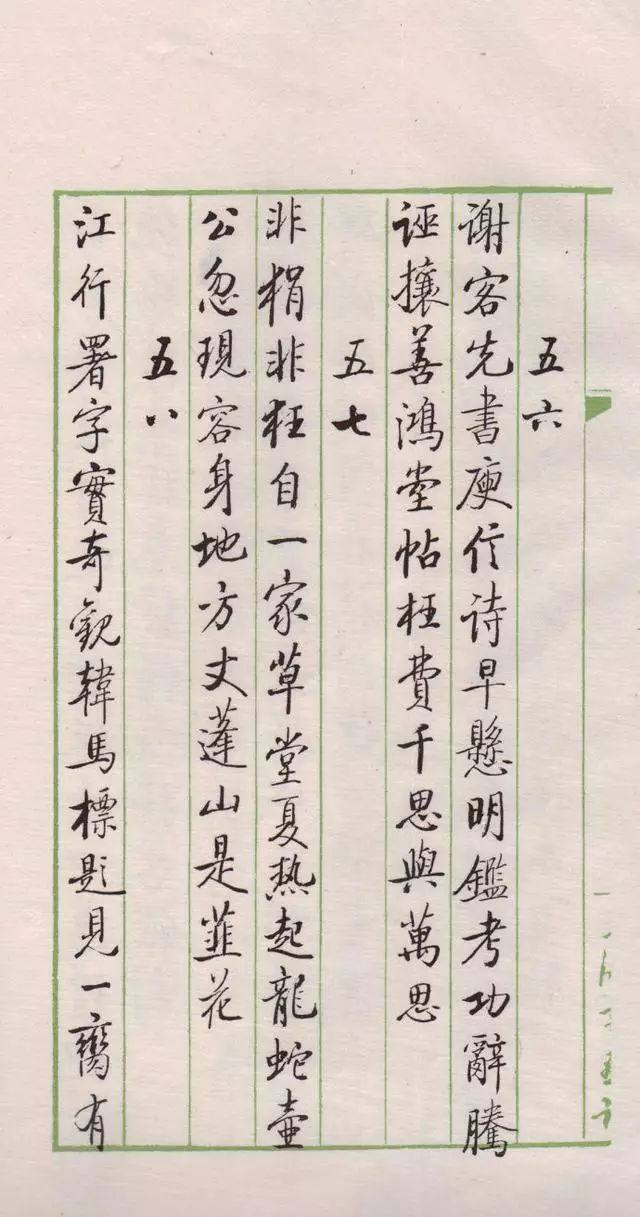 五六
谢客先書庾信诗早懸明鑑考功辭騰
誣攘善鴻堂帖枉費千思與萬思
五七
非楷非狂自一家草堂夏热起龍蛇壷
公忽現容身地方丈蓬山是韮花
五八
江行署字實奇觀韓馬標题見一臠有